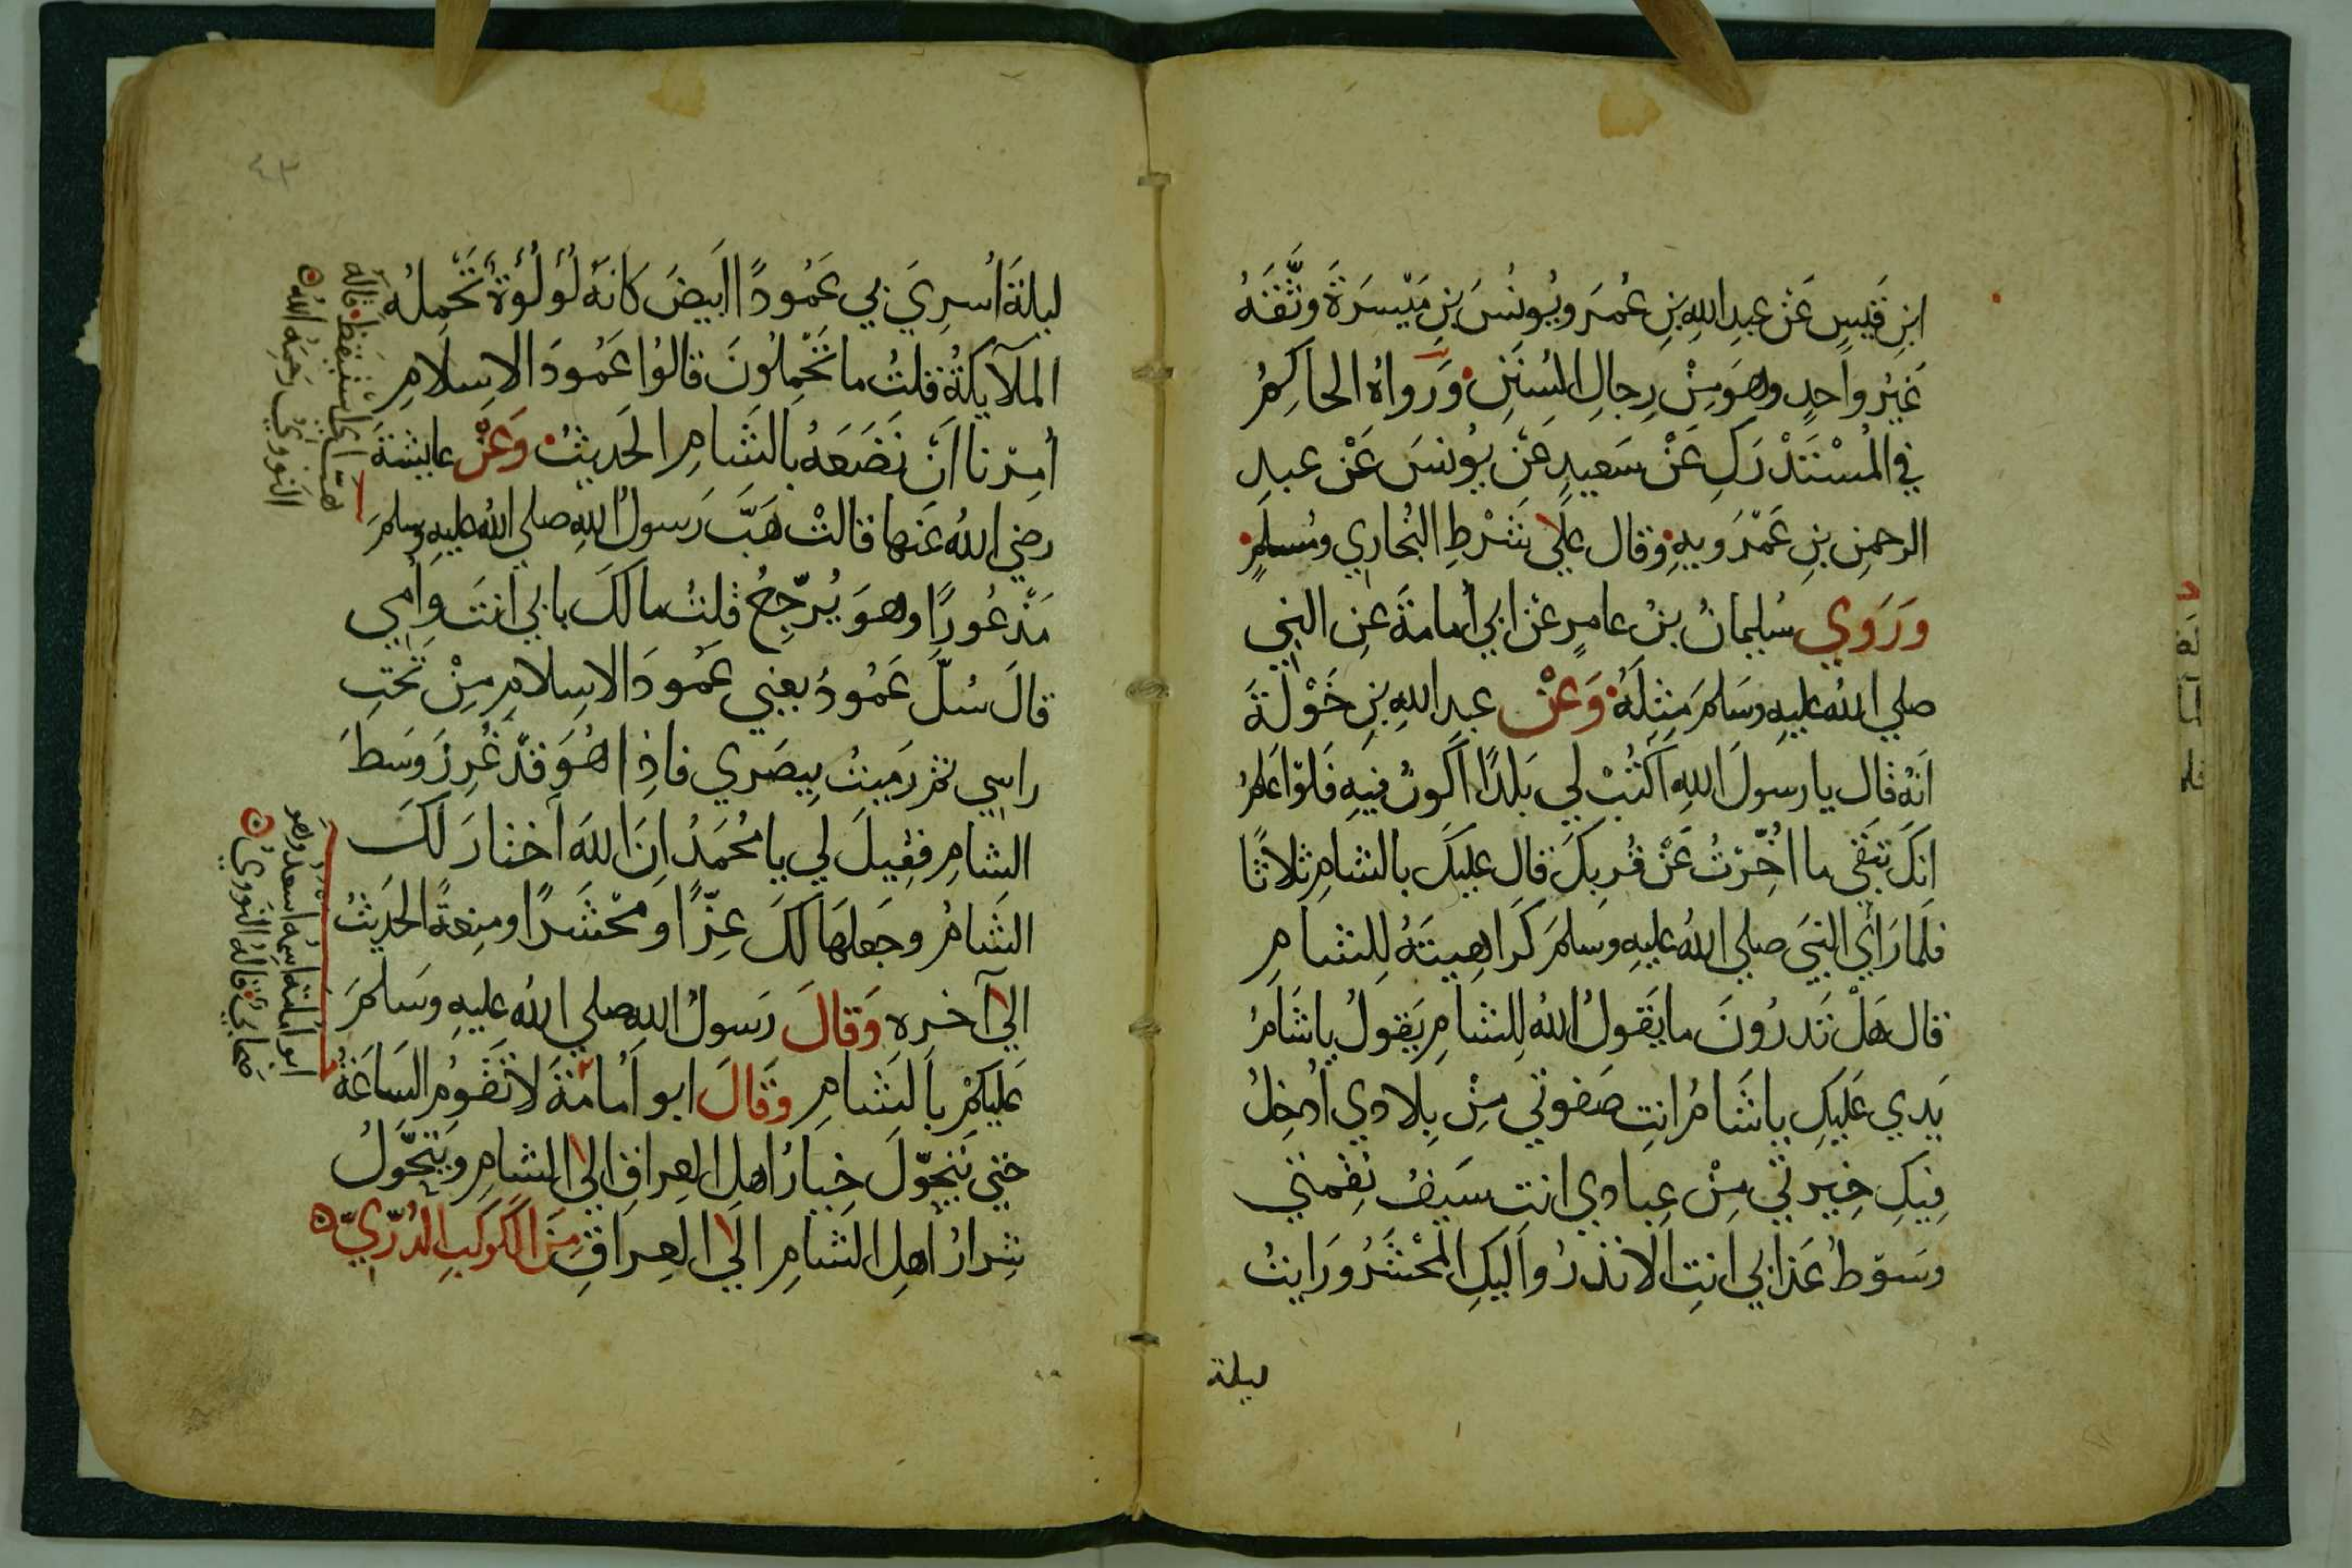 ابنِ قَيسٍ عَنْ عبدِ اللهِ بنِ عُمَرَ ويُونُسَ بنِ مَيْسَرَةَ وثَّقَهُ
غَيرُ واحدٍ وهوَ مِنْ رِجالِ السُنَنِ وَرَواهُ الحاكِمُ
في المُسْتَدْرَكِ عَنْ سَعيدٍ عَنْ يُونسَ عَنْ عبدِ
الرحمنِ بنِ عَمْرَويهِ وقال علَي شَرْطِ البُخاري ومُسلمٍ
وَرَوَي سُليمانُ بنُ عامرٍ عَن ابي أُمامةَ عنِ النبي
صلي اللهُ عليهِ وسَلمَ مِثلَهُ وَعَنْ عبدِ اللهِ بنِ خَوْلَةَ
اَنهُ قال يا رسولَ اللهِ اكتُبْ لي بَلدًا اَكونُ فيهِ فَلَوْ اعَلمُ
انكَ تَبقَي ما اخُّرْتُ عَنْ قُربِكَ قال عليكَ بالشامِ ثلاثًا
فلمَا رَأي النبيَ صلي اللهُ عليهِ وسلمَ كَراهِيتَهُ لِلشامِ
قال هَلْ تَدرُونَ ما يَقولُ اللهُ لِلشامِ يَقولُ يا شَامُ
يَدي عَليكِ يا شَامُ انتِ صَفوتي مِنْ بِلادي اُدخِلُ
فِيكِ خِيرتي مِنْ عِبادي انتِ سَيفُ نِقمتي
وسَوْطُ عَذابي اَنتِ الانذرُ واليكِ المَحْشَرُ وَرَايتُ
ليلة
ليلةَ اُسرِيَ بي عَمُودًا ابيضَ كانهُ لُؤلُؤةُ تَحمِلُه
الملآيكةُ فقلتُ ما تَحمِلُونَ قالوُا عَمُودَ الاِسلامِ
أُمِرْنا اَنْ نَضَعَهُ بالشَامِ الحَديثُ وَعَنْ عايشةَ
رضيَ اللهُ عَنها قالتْ هَبَّ رَسولُ اللهِ صلي اللهُ عليهِ وسلمَ
مَذْعُورًا وهوَ يُرَجّعُ قلتُ مالَكَ بابي انتَ واُمي
قالَ سُلَّ عَمُودُ يعني عَمُودَ الاسلامِ مِنْ تَحْتِ
راسي ثم رَميتُ بِبصَري فاذِا هُوَ قَدْ غُرِزَ وَسَطَ
الشامِ فقيلَ لي يا مُحَمدُ اِنَ اللهَ اختارَ لكَ
الشامُ وجَعلهَا لكَ عِزًّا ومَحْشَرًا ومنعةً الحَديثُ
الي آخرهِ وَقالَ رَسولُ اللهِ صلي اللهُ عليهِ وسَلمَ
عَليكمْ بالشَامِ وَقَالَ ابو اُمامةَ لا تَقومُ السَاعَةُ
حتي يَتَحوّلَ خِيارُ اهلِ العِراقِ الي الشامِ ويَتحَّولُ
شِرارُ اَهلِ الشَامِ الي العِراقِ مِنَ الكَوكَبِ الدُرّيّ
هبّ اي اسْتَيقظ قاله
النوويُ رَحِمَهُ اللهُ
ابو اُمامةَ اسمُه اسعد وهو
صَحابيٌ قالهُ النوويُ